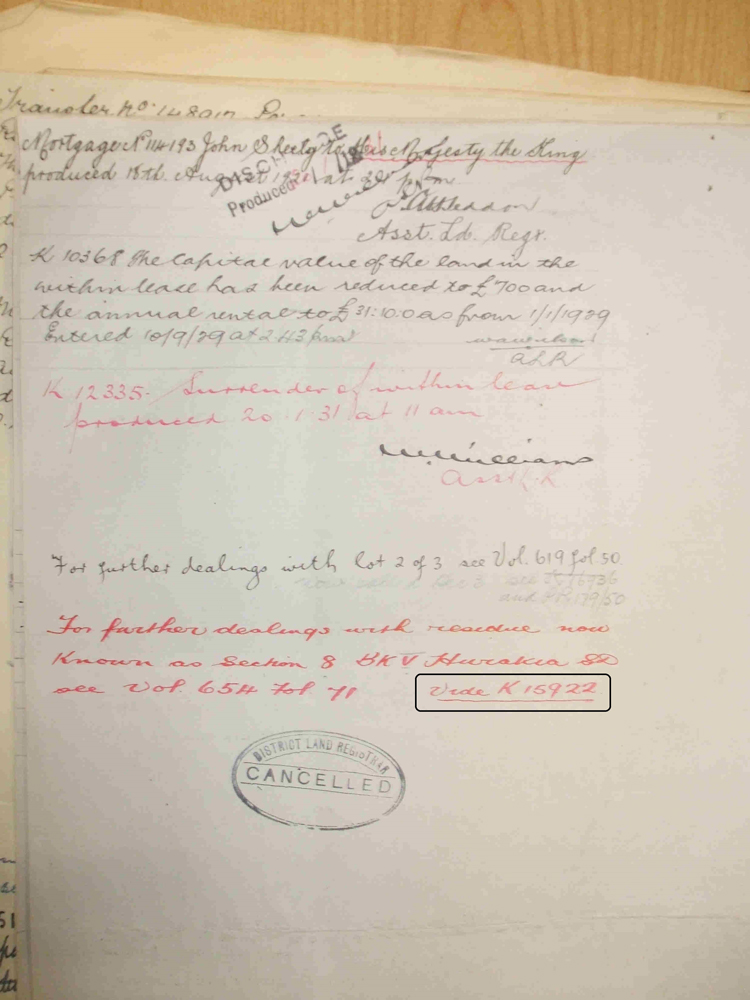 Transfer No. 148017
Mortgage No 114193 John Sheely to His Majesty the King
produced 18th August 1921 at 2 pm
DISCHARGE
Produced at
Asst. Ld. Regr.
K 10368 The Capital value of the land in the
within lease has been reduced to £700 and
the annual rental to £31:10:0 as from 1/1/1929
Entered 10/9/29 at 2.43 pm
ALR
K 12335. Surrender of within lease
produced 20.1.31 at 11 am
Williams
Asst L.R
For further dealings with lot 2 of 3 see Vol. 619 fol. 50
For further dealings with residue now
Known as Section 8 BK V Hurakia SD
see Vol. 654 Fol. 71 Vide K 15922
DISTRICT LAND REGISTRAR
CANCELLED